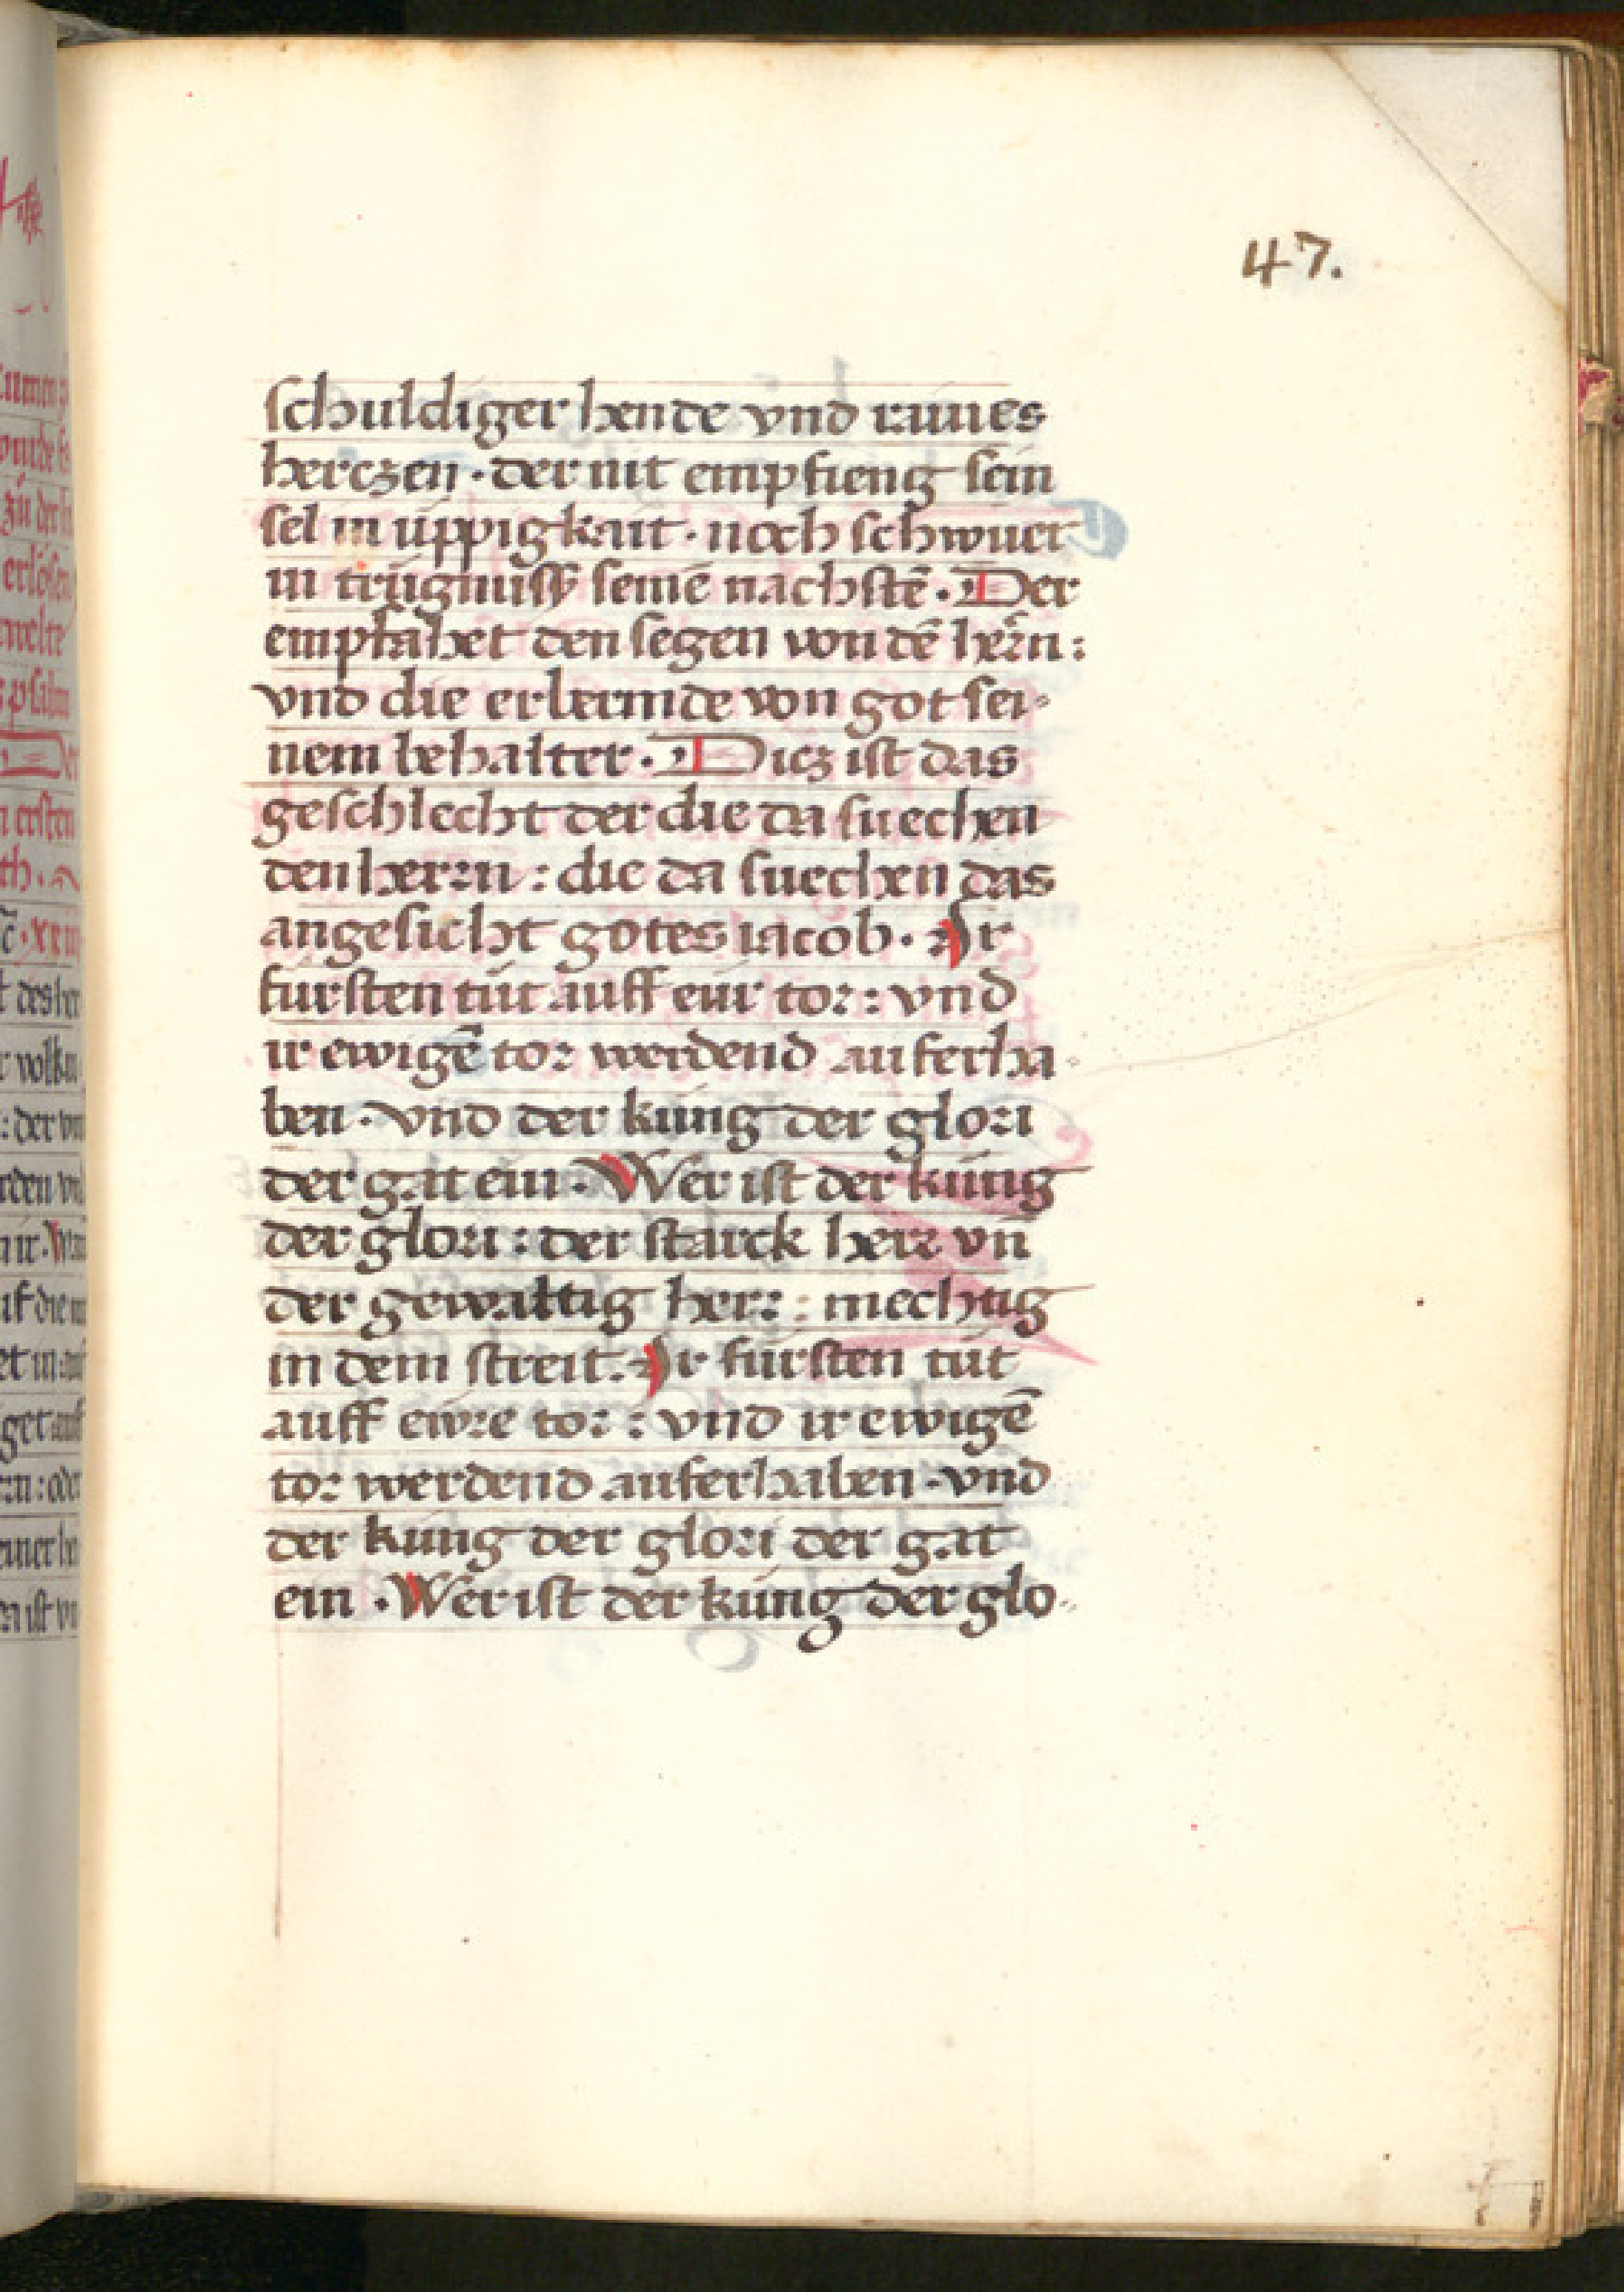 47.
schuldiger hende vnd raines
herczen · der nit empfieng sein
sel in üppigkait · noch schwuer
in trügnüssꝫ seinē nachstē · Der
empfahet den segen von dē hern :
vnd die erbermde von got sei-
nem behalter · Dicz ist das
geschlecht der die da suechen
den herrn : die da suechen das
angesicht gotes iacob · Ir
fürsten tüt auff eür tor : vnd
ir ewigē tor werdend auferha-
ben · vnd der küng der glori
der gat ein · Wer ist der küng
der glori : der starck herr vn̄
der gewaltig herr : mechtig
in dem streit · Ir fürsten tüt
auff ewre tor : vnd ir ewigē
tor werdend auferhaben · vnd
der küng der glori der gat
ein · Wer ist der küng der glo-